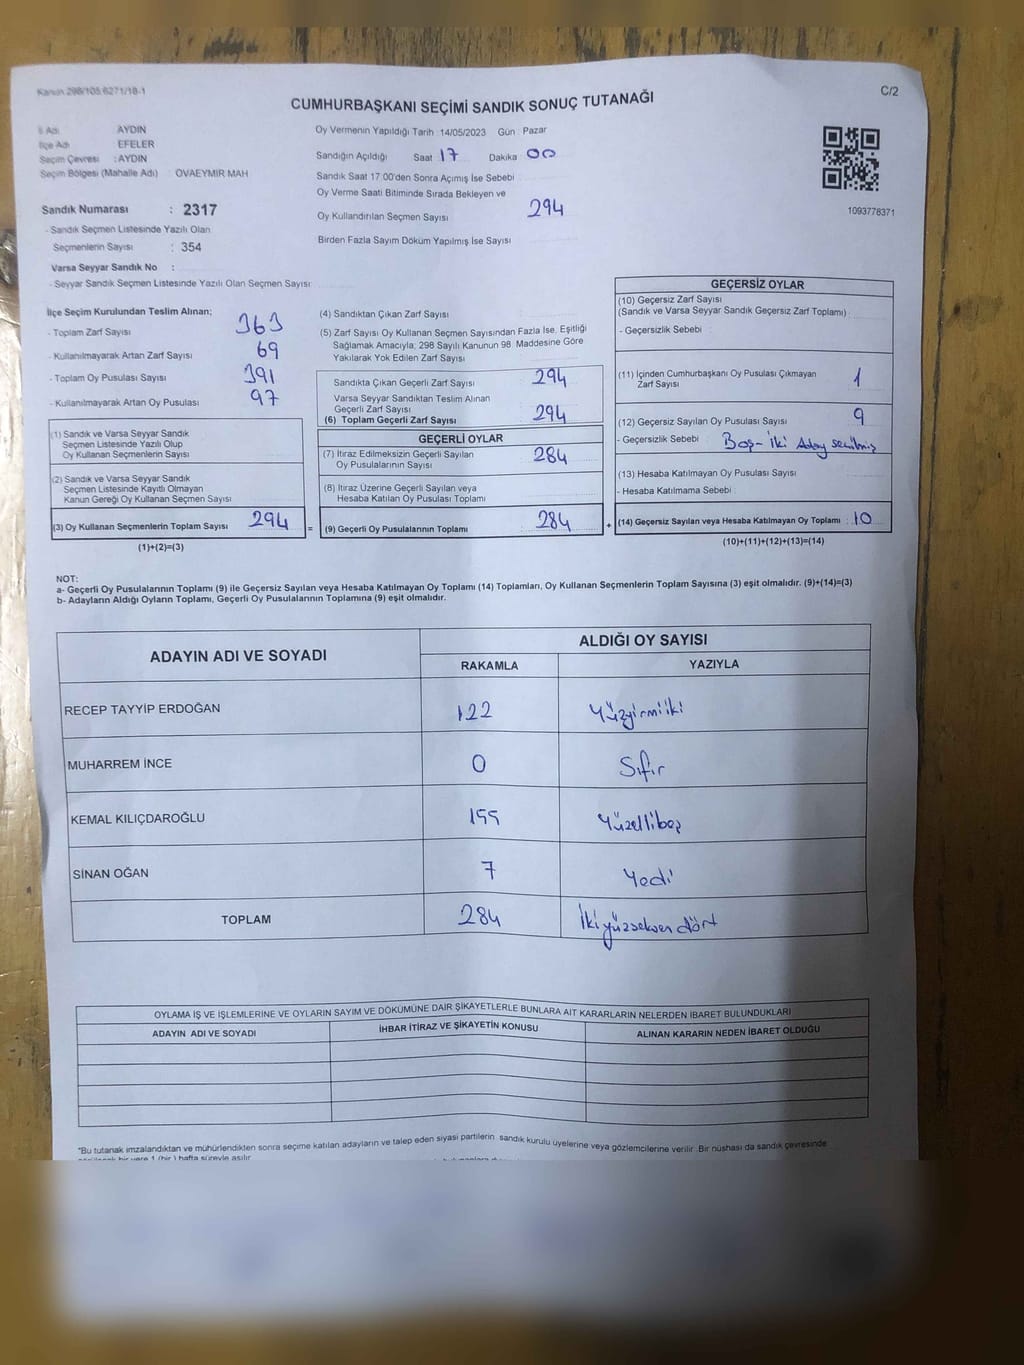 Kanun 298/105 6271/18-1
C/2
CUMHURBAŞKANI SEÇİMİ SANDIK SONUÇ TUTANAĞI
İl Adı AYDIN
İlçe Adı EFELER
Seçim Çevresi : AYDIN
Seçim Bölgesi (Mahalle Adı) : OVAEYMIR MAH
Sandık Numarası : 2317
- Sandık Seçmen Listesinde Yazılı Olan
Seçmenlerin Sayısı : 354
Varsa Seyyar Sandık No :
- Seyyar Sandık Seçmen Listesinde Yazılı Olan Seçmen Sayısı:
Oy Vermenin Yapıldığı Tarih :14/05/2023 Gün : Pazar
Sandığın Açıldığı Saat 17 Dakika 00
Sandık Saat 17:00'den Sonra Açımış İse Sebebi
Oy Verme Saati Bitiminde Sırada Bekleyen ve
Oy Kullandırılan Seçmen Sayısı 294
Birden Fazla Sayım Döküm Yapılmış İse Sayısı
1093778371
İlçe Seçim Kurulundan Teslim Alınan;
- Toplam Zarf Sayısı 363
- Kullanılmayarak Artan Zarf Sayısı 69
- Toplam Oy Pusulası Sayısı 391
- Kullanılmayarak Artan Oy Pusulası 97
(1) Sandık ve Varsa Seyyar Sandık
Seçmen Listesinde Yazılı Olup
Oy Kullanan Seçmenlerin Sayısı
(2) Sandık ve Varsa Seyyar Sandık
Seçmen Listesinde Kayıtlı Olmayan
Kanun Gereği Oy Kullanan Seçmen Sayısı
(3) Oy Kullanan Seçmenlerin Toplam Sayısı 294 =
(1)+(2)=(3)
(4) Sandıktan Çıkan Zarf Sayısı
(5) Zarf Sayısı Oy Kullanan Seçmen Sayısından Fazla İse, Eşitliği
Sağlamak Amacıyla; 298 Sayılı Kanunun 98. Maddesine Göre
Yakılarak Yok Edilen Zarf Sayısı
Sandıkta Çıkan Geçerli Zarf Sayısı 294
Varsa Seyyar Sandıktan Teslim Alınan
Geçerli Zarf Sayısı
(6) Toplam Geçerli Zarf Sayısı 294
GEÇERLİ OYLAR
(7) İtiraz Edilmeksizin Geçerli Sayılan
Oy Pusulalarının Sayısı 284
(8) İtiraz Üzerine Geçerli Sayılan veya
Hesaba Katılan Oy Pusulası Toplamı
(9) Geçerli Oy Pusulalarının Toplamı 284 +
GEÇERSİZ OYLAR
(10) Geçersiz Zarf Sayısı
(Sandık ve Varsa Seyyar Sandık Geçersiz Zarf Toplamı) :
- Geçersizlik Sebebi :
(11) İçinden Cumhurbaşkanı Oy Pusulası Çıkmayan
Zarf Sayısı 1
(12) Geçersiz Sayılan Oy Pusulası Sayısı 9
- Geçersizlik Sebebi : Boş-İki Aday seçilmiş
(13) Hesaba Katılmayan Oy Pusulası Sayısı
- Hesaba Katılmama Sebebi :
(14) Geçersiz Sayılan veya Hesaba Katılmayan Oy Toplamı : 10
(10)+(11)+(12)+(13)=(14)
NOT:
a- Geçerli Oy Pusulalarının Toplamı (9) ile Geçersiz Sayılan veya Hesaba Katılmayan Oy Toplamı (14) Toplamları, Oy Kullanan Seçmenlerin Toplam Sayısına (3) eşit olmalıdır. (9)+(14)=(3)
b- Adayların Aldığı Oyların Toplamı, Geçerli Oy Pusulalarının Toplamına (9) eşit olmalıdır.
ADAYIN ADI VE SOYADI
ALDIĞI OY SAYISI
RAKAMLA YAZIYLA
RECEP TAYYİP ERDOĞAN 122 Yüzyirmiiki
MUHARREM İNCE 0 Sıfır
KEMAL KILIÇDAROĞLU 155 Yüzellibeş
SİNAN OĞAN 7 Yedi
TOPLAM 284 İkiyüzseksen dört
OYLAMA İŞ VE İŞLEMLERİNE VE OYLARIN SAYIM VE DÖKÜMÜNE DAİR ŞİKAYETLERLE BUNLARA AİT KARARLARIN NELERDEN İBARET BULUNDUKLARI
ADAYIN ADI VE SOYADI İHBAR İTİRAZ VE ŞİKAYETİN KONUSU ALINAN KARARIN NEDEN İBARET OLDUĞU
*Bu tutanak imzalandıktan ve mühürlendikten sonra seçime katılan adayların ve talep eden siyasi partilerin sandık kurulu üyelerine veya gözlemcilerine verilir. Bir nüshası da sandık çevresinde
bir yere 1 (bir) hafta süreyle asılır